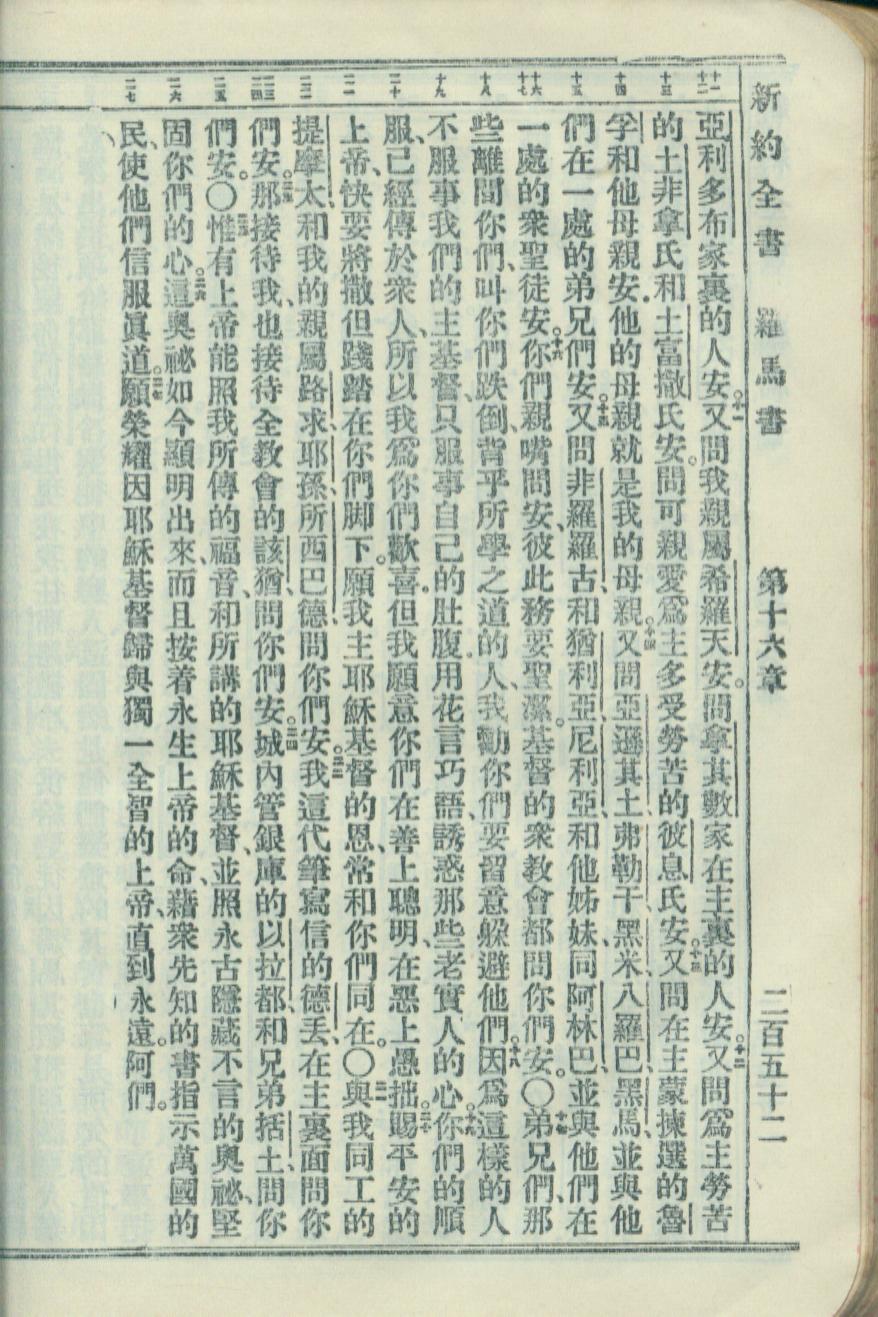 新約全書 羅馬書 第十六章 二百五十二
十一 十二 亞利多布家裏的人安。十一又問我親屬希羅天安。問拿其數家在主裏的人安。十二又問爲主勞苦
十三 的土非拿氏和土富撒氏安。問可親愛爲主多受勞苦的彼息氏安。十三又問在主蒙揀選的魯
十四 孚和他母親安、他的母親就是我的母親。十四又問亞遜其土、弗勒干、黑米、八羅巴、黑馬、並與他
十五 們在一處的弟兄們安。十五又問非羅羅古、和猶利亞、尼利亞、和他姊妹、同阿林巴、並與他們在
十六 十七 一處的衆聖徒安。十六你們親嘴問安、彼此務要聖潔。基督的衆教會都問你們安。〇十七弟兄們、那
十八 些離間你們、叫你們跌倒、背乎所學之道的人、我勸你們要留意躲避他們。十八因爲這樣的人
十九 不服事我們的主基督、只服事自己的肚腹、用花言巧語、誘惑那些老實人的心。十九你們的順
二十 服、已經傳於衆人、所以我爲你們歡喜。但我願意你們在善上聰明、在惡上愚拙。二十賜平安的
二一 上帝、快要將撒但踐踏在你們脚下。願我主耶穌基督的恩、常和你們同在。〇二一與我同工的
二二 提摩太、和我的親屬路求、耶孫、所西巴德、問你們安。二二我這代筆寫信的德丟、在主裏面問你
二三 二四 們安。二三那接待我、也接待全教會的該猶、問你們安。二四城內管銀庫的以拉都、和兄弟括土、問你
二五 們安。〇二五惟有上帝能照我所傳的福音、和所講的耶穌基督、並照永古隱藏不言的奧祕、堅
二六 固你們的心。二六這奧祕如今顯明出來、而且按着永生上帝的命、藉衆先知的書、指示萬國的
二七 民、使他們信服眞道。二七願榮耀因耶穌基督歸與獨一全智的上帝、直到永遠。阿們。